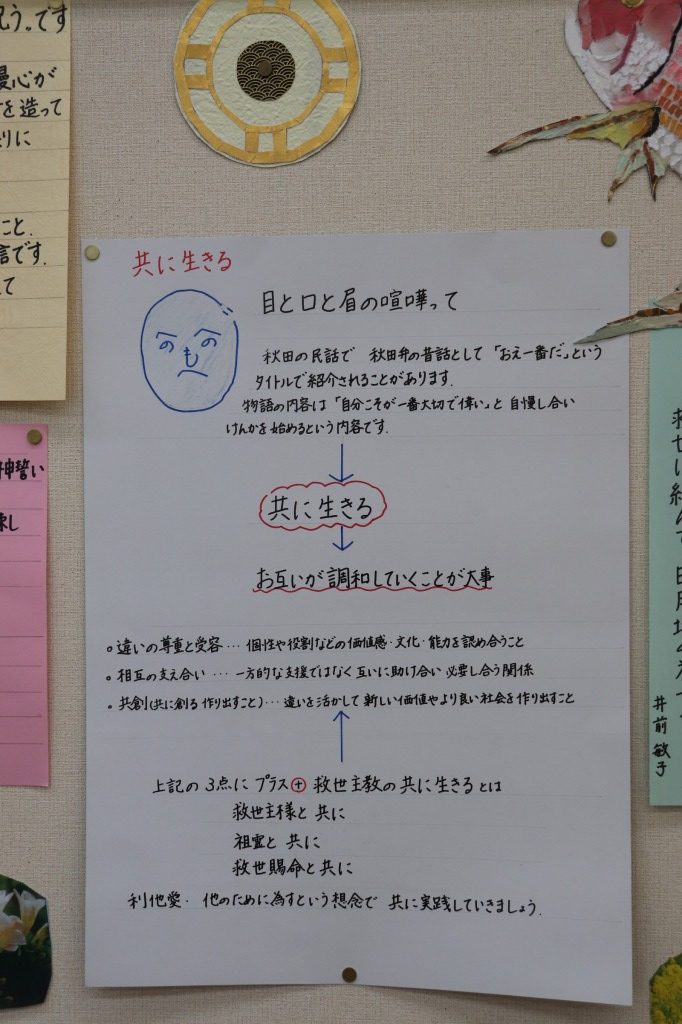 兄う。です
慢心が
を造って
りに
こと.
言です.
て
神誓い
共に生きる
目と口と眉の喧嘩って
秋田の民話で 秋田弁の昔話として「おえ一番だ」という
タイトルで紹介されることがあります.
物語の内容は「自分こそが一番大切で偉い」と 自慢し合い
けんかを始めるという内容です.
共に生きる
お互いが調和していくことが大事
○違いの尊重と受容… 個性や役割などの価値感・文化・能力を認め合うこと
○相互の支え合い … 一方的な支援ではなく互いに助け合い 必要し合う関係
○共創(共に創る 作り出すこと)… 違いを活かして 新しい価値やより良い社会を作り出すこと
上記の3点に プラス⊕救世主教の共に生きるとは
救世主様と共に
祖霊と共に
救世賜命と共に
利他愛・他のために為すという想念で 共に実践していきましょう.
井前 敏子